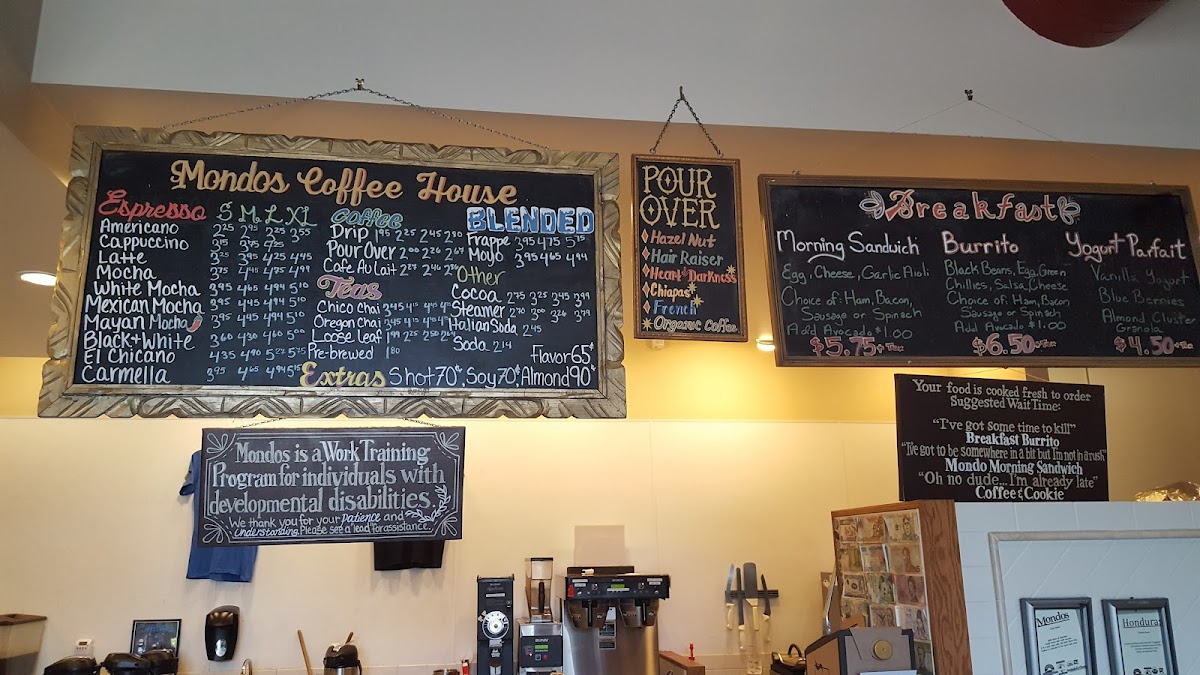 Mondos Coffee House
Espresso S M L XL
Americano 2.25 2.95 3.25 3.55
Cappuccino 3.15 3.75 4.25
Latte 3.25 3.95 4.25 4.45
Mocha 3.75 4.25 4.75 4.95
White Mocha 3.95 4.45 4.85 5.10
Mexican Mocha 3.95 4.45 4.94 5.10
Mayan Mocha 3.95 4.45 4.94 5.10
Black+White 3.60 4.30 4.60 5
El Chicano 4.35 4.90 5.27 5.75
Carmella 3.95 4.65 4.94 5.15
Coffee
Drip 1.95 2.25 2.45 2.90
Pour Over 2.00
Cafe Au Lait
Teas
Chico Chai 3.45
Oregon Chai 3.45
Loose Leaf 1.99
Pre-brewed 1.80
BLENDED
Frappe 3.95 4.75 5.15
Moyo 3.95 4.65 4.94
Other
Cocoa 2.75 3.25 3.45 3.99
Steamer 2.70 3.00 3.26 3.79
Italian Soda 2.45
Soda 2.14
Flavor 65¢
Extras Shot 70¢, Soy 70¢, Almond 90¢
POUR
OVER
Hazel Nut
Hair Raiser
Heart of Darkness
Chiapas
French
Organic Coffee
Breakfast
Morning Sandwich
Egg, Cheese, Garlic Aioli
Choice of: Ham, Bacon,
Sausage or Spinach
Add Avocado $1.00
$5.75 + Tax
Burrito
Black Beans, Egg, Green
Chilies, Salsa, Cheese
Choice of: Ham, Bacon
Sausage or Spinach
Add Avocado $1.00
$6.50 + Tax
Yogurt Parfait
Vanilla Yogurt
Blue Berries
Almond Cluster
Granola
$4.50 + Tax
Your food is cooked fresh to order
Suggested Wait Time:
"I've got some time to kill"
Breakfast Burrito
"I've got to be somewhere in a bit but I'm not in a rush"
Mondo Morning Sandwich
"Oh no dude...I'm already late"
Coffee & Cookie
Mondos is a Work Training
Program for individuals with
developmental disabilities.
We thank you for your Patience and
Understanding. Please see a lead for assistance.
Mondos
Honduras